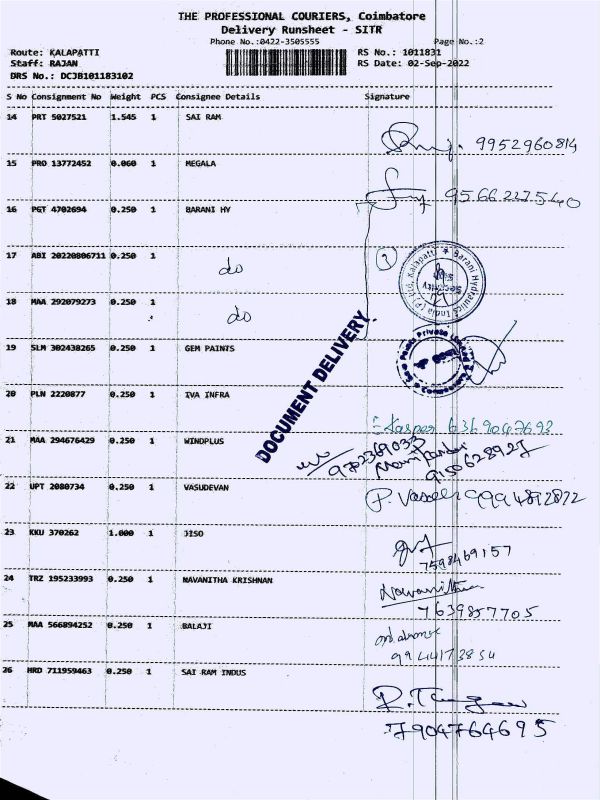 THE PROFESSIONAL COURIERS, Coimbatore
Delivery Runsheet - SITR
Phone No.:0422-3505555 Page No.:2
Route: KALAPATTI RS No.: 1011831
Staff: RAJAN RS Date: 02-Sep-2022
DRS No.: DCJB101183102
S No Consignment No Weight PCS Consignee Details Signature
14 PRT 5027521 1.545 1 SAI RAM
9952960814
15 PRO 13772452 0.060 1 MEGALA
9566227540
16 PGT 4702694 0.250 1 BARANI HY
17 ABI 20220806711 0.250 1 do
Barani Hydraulics India (P) Ltd, Kalapatti
Security
18 MAA 292079273 0.250 1 do
DOCUMENT DELIVERY
19 SLM 302438265 0.250 1 GEM PAINTS
Gem Paints Private Limited
20 PLN 2220877 0.250 1 IVA INFRA
6369047693
21 MAA 294676429 0.250 1 WINDPLUS
22 UPT 2080734 0.250 1 VASUDEVAN
9994892872
23 KKU 370262 1.000 1 JISO
7598469157
24 TRZ 195233993 0.250 1 NAVANITHA KRISHNAN
Navanitha
7639857705
25 MAA 566894252 0.250 1 BALAJI
9944173854
26 HRD 711959463 0.250 1 SAI RAM INDUS
7904764695